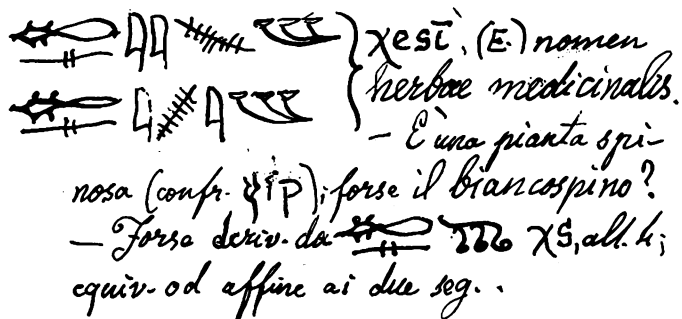 χestì, (E.) nomen
herbae medicinalis.
— È una pianta spi-
nosa (confr. ); forse il biancospino?
— Forse deriv. da χS, all. h;
equiv. od affine ai due seg. .